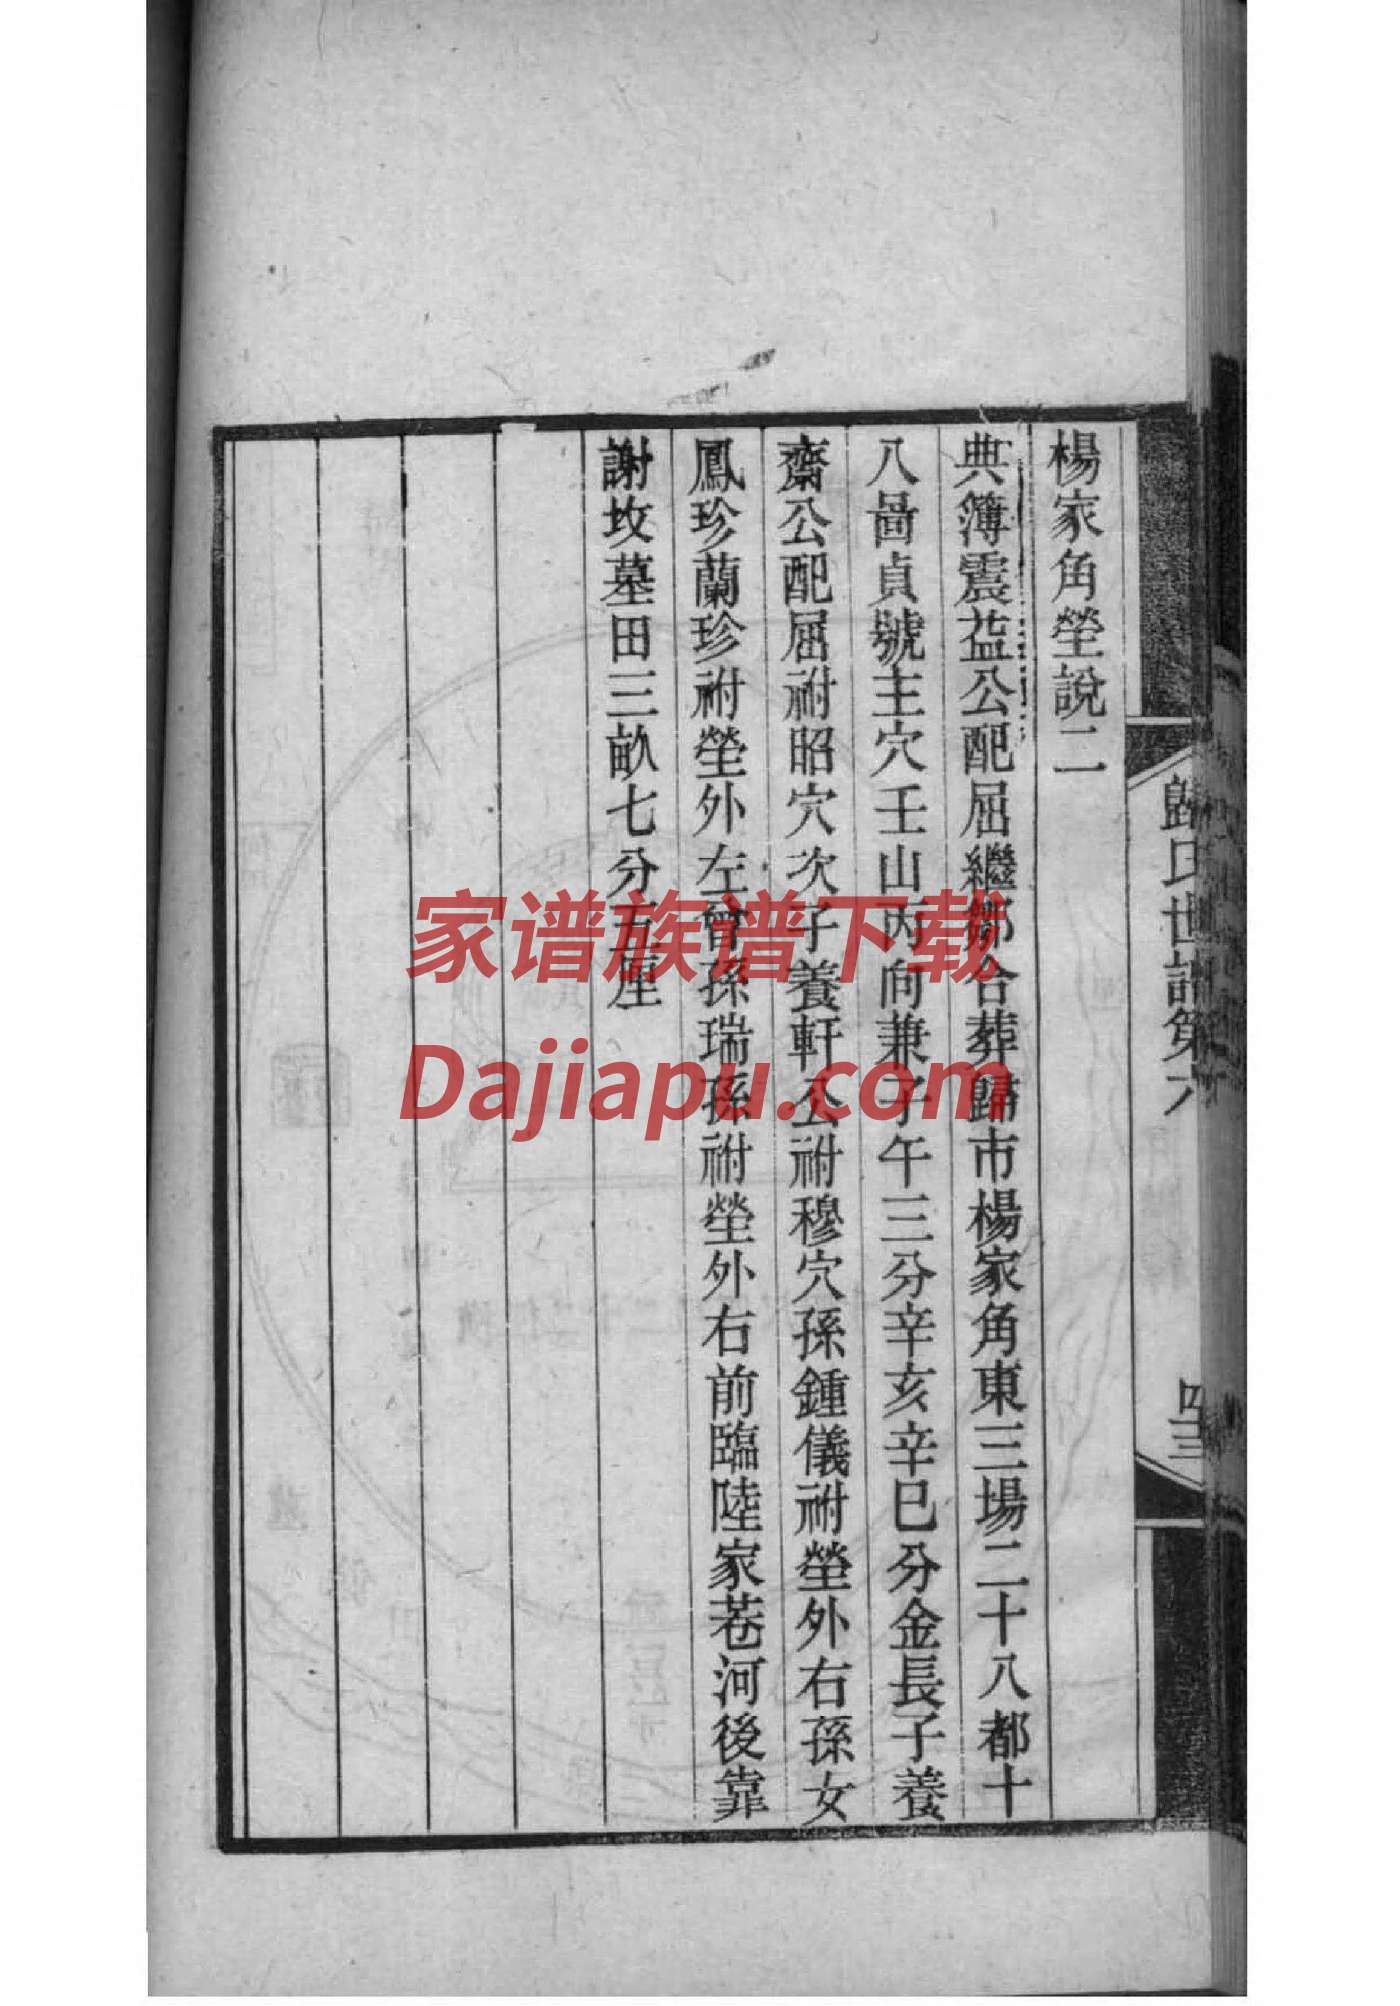 楊家角塋說二
典簿震益公配屈繼鄒合葬歸市楊家角東三場二十八都十
八啚貞號主穴壬山丙向兼子午三分辛亥辛巳分金長子養
齋公配屈祔昭穴次子養軒公祔穆穴孫鍾儀祔塋外右孫女
鳳珍蘭珍祔塋外左曾孫瑞孫祔塋外右前臨陸家巷河後靠
謝坟墓田三畝七分五厘
歸氏世譜第六
四三
家谱族谱下载
Dajiapu.com